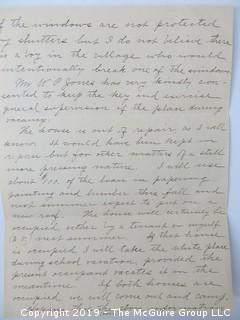 of the windows are not protected
by shutters but I do not believe there
is a boy in the village who would
intentionally break one of the windows
Mr W P Jones has very kindly con-
sented to keep the key and exercise
general supervision of the place during
vacancy.
The house is out of repair, as I well
know. It would have been kept in
repair but for other matters of a still
more pressing nature. I will use
about 100 of the loan in papering
painting and lumber this fall and
next summer expect to put on a
new roof. The house will certainly be
occupied either by a tenant or myself
next summer. If that house
is occupied I will take the white place
during school vacation, provided the
present occupant vacates it in the
meantime. If both houses are
occupied we will come out and camp
Copyright 2019 - The McGuire Group LLC